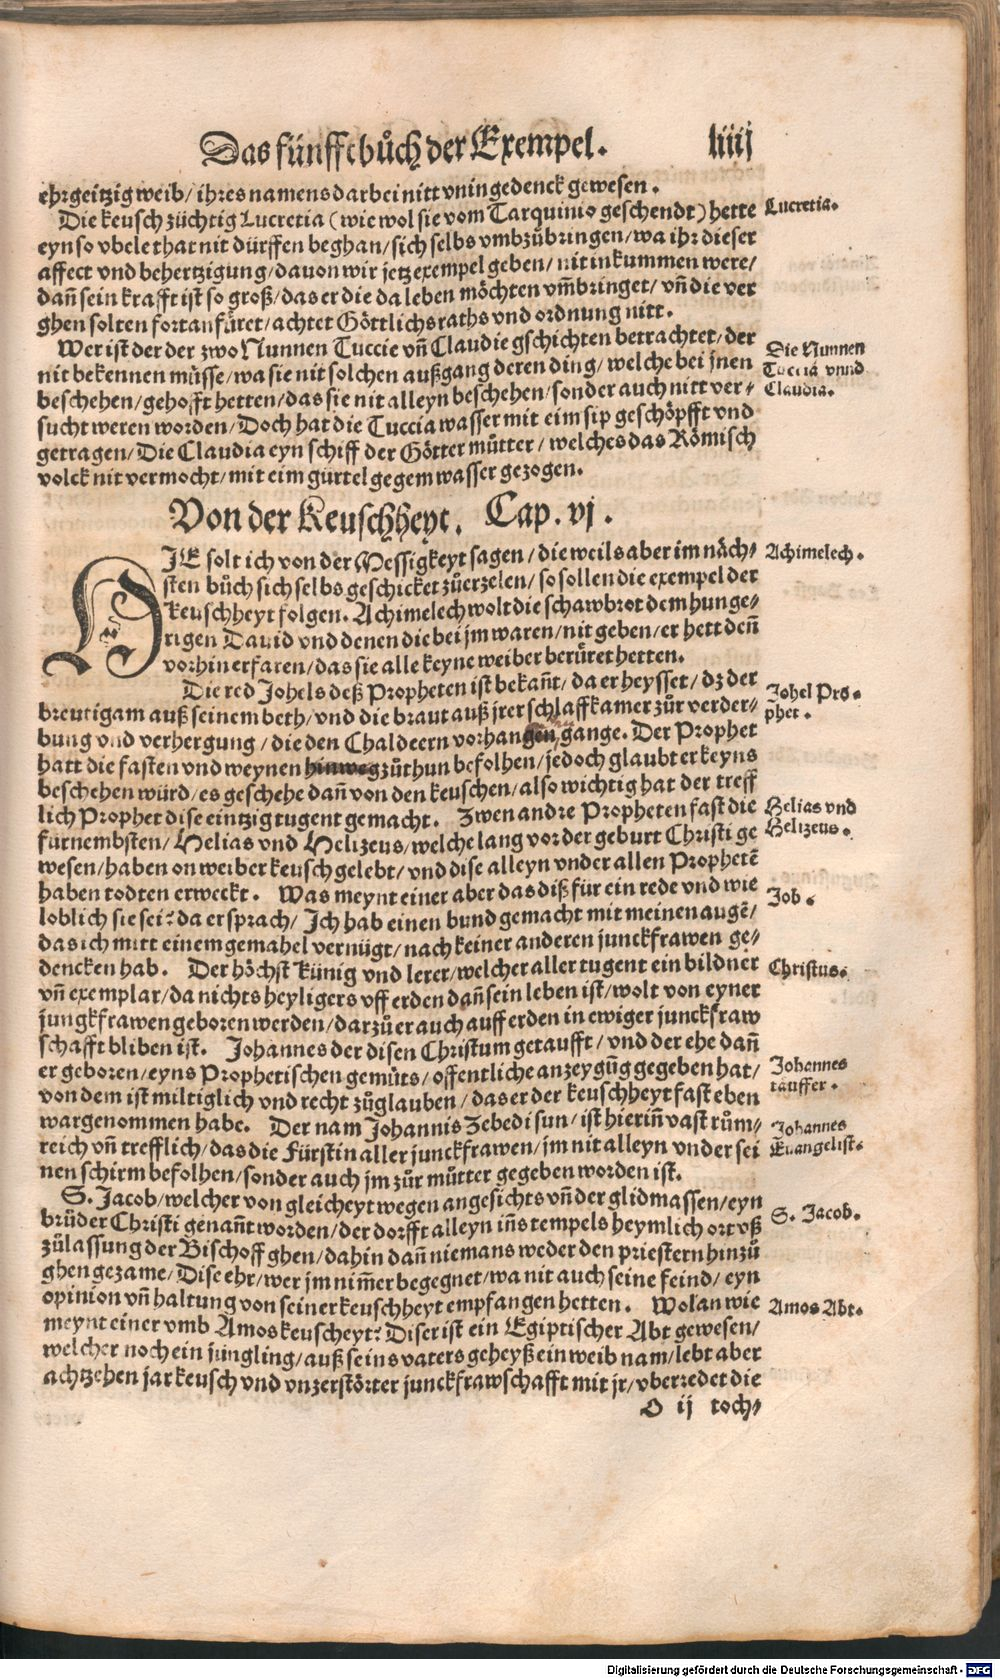 Das fünfft bůch der Exempel. liiij
ehrgeitzig weib/ ihres namens darbei nitt vningedenck gewesen.
Die keusch züchtig Lucretia (wie wol sie vom Tarquinio geschendt) hette
Lucretia.
eyn so vbele that nit dürffen beghan/ sich selbs vmbzůbringen/ wa ihr dieser
affect vnd behertzigung/ dauon wir jetz exempel geben/ nit inkummen were/
dañ sein krafft ist so groß/ das er die da leben möchten vm̃bringet/ vñ die ver
ghen solten fortan füret/ achtet Göttlichs raths vnd ordnung nitt.
Wer ist der der zwo Nunnen Tuccie vñ Claudie gschichten betrachtet/ der
Die Nunnen
Tuccia vnnd
Claudia.
nit bekennen müsse/ wa sie nit solchen außgang deren ding/ welche bei jnen
beschehen/ gehofft hetten/ das sie nit alleyn beschehen/ sonder auch nitt ver-
sucht weren worden/ Doch hat die Tuccia wasser mit eim sip geschöpfft vnd
getragen/ Die Claudia eyn schiff der Götter můtter/ welches das Römisch
volck nit vermocht/ mit eim gürtel gegem wasser gezogen.
Von der Keuschheyt. Cap. vj.
HIE solt ich von der Messigkeyt sagen/ die weils aber im näch-
Achimelech.
sten bůch sich selbs geschicket zůerzelen/ so sollen die exempel der
keuschheyt folgen. Achimelech wolt die schawbrot dem hunge-
rigen Dauid vnd denen die bei jm waren/ nit geben/ er hett deñ
vorhin erfaren/ das sie alle keyne weiber berüret hetten.
Die red Johels deß Propheten ist bekañt/ da er heysset/ dz der
Johel Pro-
phet.
breutigam auß seinem beth/ vnd die braut auß jrer schlaffkamer zůr verder-
bung vnd verhergung/ die den Chaldeern vorhangen gange. Der Prophet
hatt die fasten vnd weynen hinweg zůthun befolhen/ jedoch glaubt er keyns
beschehen würd/ es geschehe dañ von den keuschen/ also wichtig hat der treff
lich Prophet dise eintzig tugent gemacht. Zwen andre Propheten fast die
Helias vnd
Helizeus.
fürnembsten/ Helias vnd Helizeus/ welche lang vor der geburt Christi ge
wesen/ haben on weiber keusch gelebt/ vnd dise alleyn vnder allen Prophetẽ
haben todten erweckt. Was meynt einer aber das diß für ein rede vnd wie
Job.
loblich sie sei? da er sprach/ Ich hab einen bund gemacht mit meinen augẽ/
das ich mitt einem gemahel vernügt/ nach keiner anderen junckfrawen ge-
dencken hab. Der höchst Künig vnd lerer/ welcher aller tugent ein bildner
Christus.
vñ exemplar/ da nichts heyligers vff erden dañ sein leben ist/ wolt von eyner
jungkfrawen geboren werden/ darzů er auch auff erden in ewiger junckfraw
schafft bliben ist. Johannes der disen Christum getaufft/ vnd der ehe dañ
Johannes
täuffer.
er geboren/ eyns Prophetischen gemüts/ offentliche anzeygũg gegeben hat/
von dem ist miltiglich vnd recht zůglauben/ das er der keuschheyt fast eben
wargenommen habe. Der nam Johannis Zebedi sun/ ist hieriñ vast rům-
Johannes
Euangelist.
reich vñ trefflich/ das die Fürstin aller junckfrawen/ jm nit alleyn vnder sei
nen schirm befolhen/ sonder auch jm zůr můtter gegeben worden ist.
S. Jacob/ welcher von gleicheyt wegen angesichts vñ der glidmassen/ eyn
S. Jacob.
brůder Christi genañt worden/ der dorfft alleyn iñs tempels heymlich ort vß
zůlassung der Bischoff ghen/ dahin dañ niemans weder den priestern hinzů
ghen gezame/ Dise ehr/ wer jm nim̃er begegnet/ wa nit auch seine feind/ eyn
opinion vñ haltung von seiner keuschheyt empfangen hetten. Wolan wie
Amos Abt.
meynt einer vmb Amos keuscheyt? Diser ist ein Egiptischer Abt gewesen/
welcher noch ein jüngling/ auß seins vaters geheyß ein weib nam/ lebt aber
achtzehen jar keusch vnd vnzerstörter junckfrawschafft mit jr/ vberredet die
O ij toch-
Digitalisierung gefördert durch die Deutsche Forschungsgemeinschaft - DFG